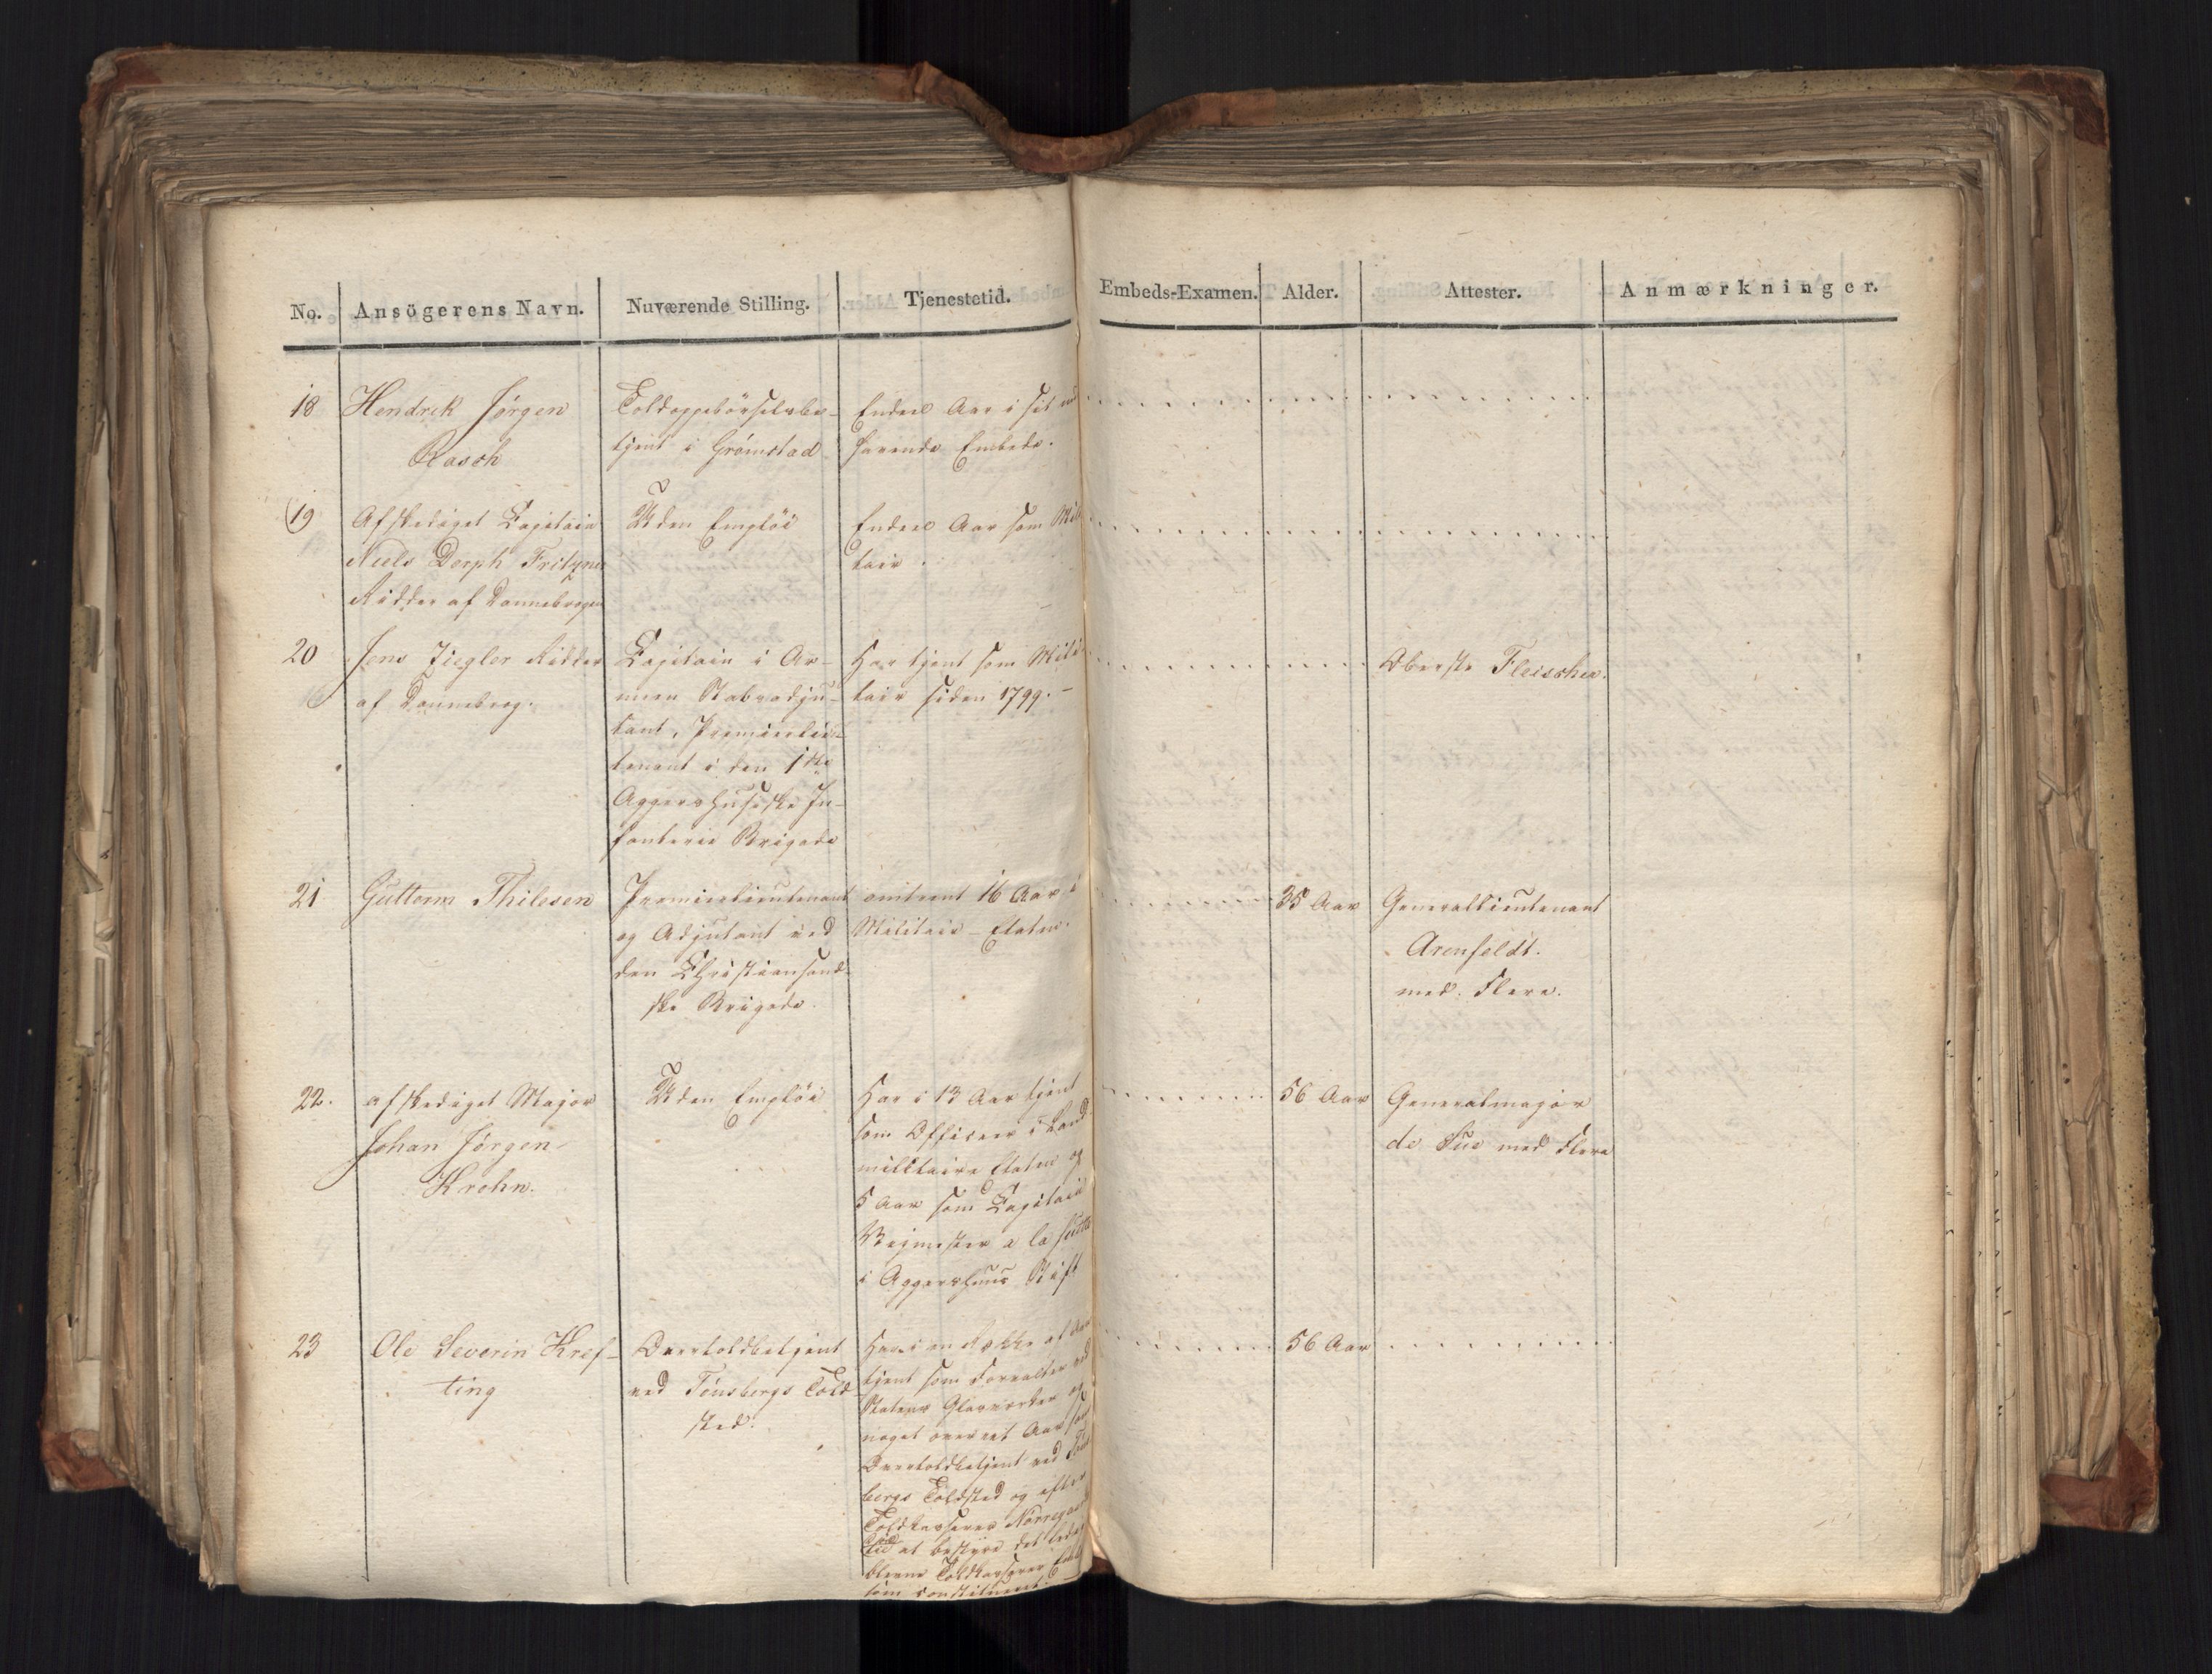 No.
Ansögerens Navn.
Nuværende Stilling.
Tjenestetid.
Embeds-Examen.
Alder.
Attester.
Anmærkninger.
18
Hendrik Jørgen
Rasch
Toldoppebørselsbe-
tjent i Grømstad
Endeel Aar i sit
havende Embede.
19
Afskediget Capitain
Niels Dorph Fritzner
Ridder af Dannebrogen
Uden Emploi
Endeel Aar som Mili
tair.
20
Jens Ziegler Ridder
af Dannebrog.
Capitain i Ar-
meen Stabsadju-
tant, Premierlieu-
tenant i den 1ste
Aggershusiske In-
fanterie Brigade
Har tjent som Mili-
tair siden 1799. -
Oberste Fleischer.
21
Guttorm Thilesen
Premierlieutenant
og Adjutant ved
den Christiansand-
ske Brigade.
omtrent 16 Aar i
Militair-Etaten.
35 Aar
Generallieutenant
Arenfeldt.
med Flere.
22.
afskediget Major
Johan Jørgen
Krohn.
Uden Emploi
Har i 13 Aar tjent
som Officeer i Land
militaire Etaten og
5 Aar som Capitain
Veimester a la suite
i Aggershuus Stift
56 Aar
Generalmajor
de Sue med Flere
23
Ole Severin Kref-
ting
Overtoldbetjent
ved Tönsbergs Told-
sted.
Har i en Række af Aar
tjent som Forvalter ved
Statens Glasværker og
noget over et Aar som
Overtoldbetjent ved Töns
bergs Toldsted og efter
Toldkasserer Nörregaards
at bestyre det ledig
blevne Toldkasserer Embede
som constitueret.
56 Aar